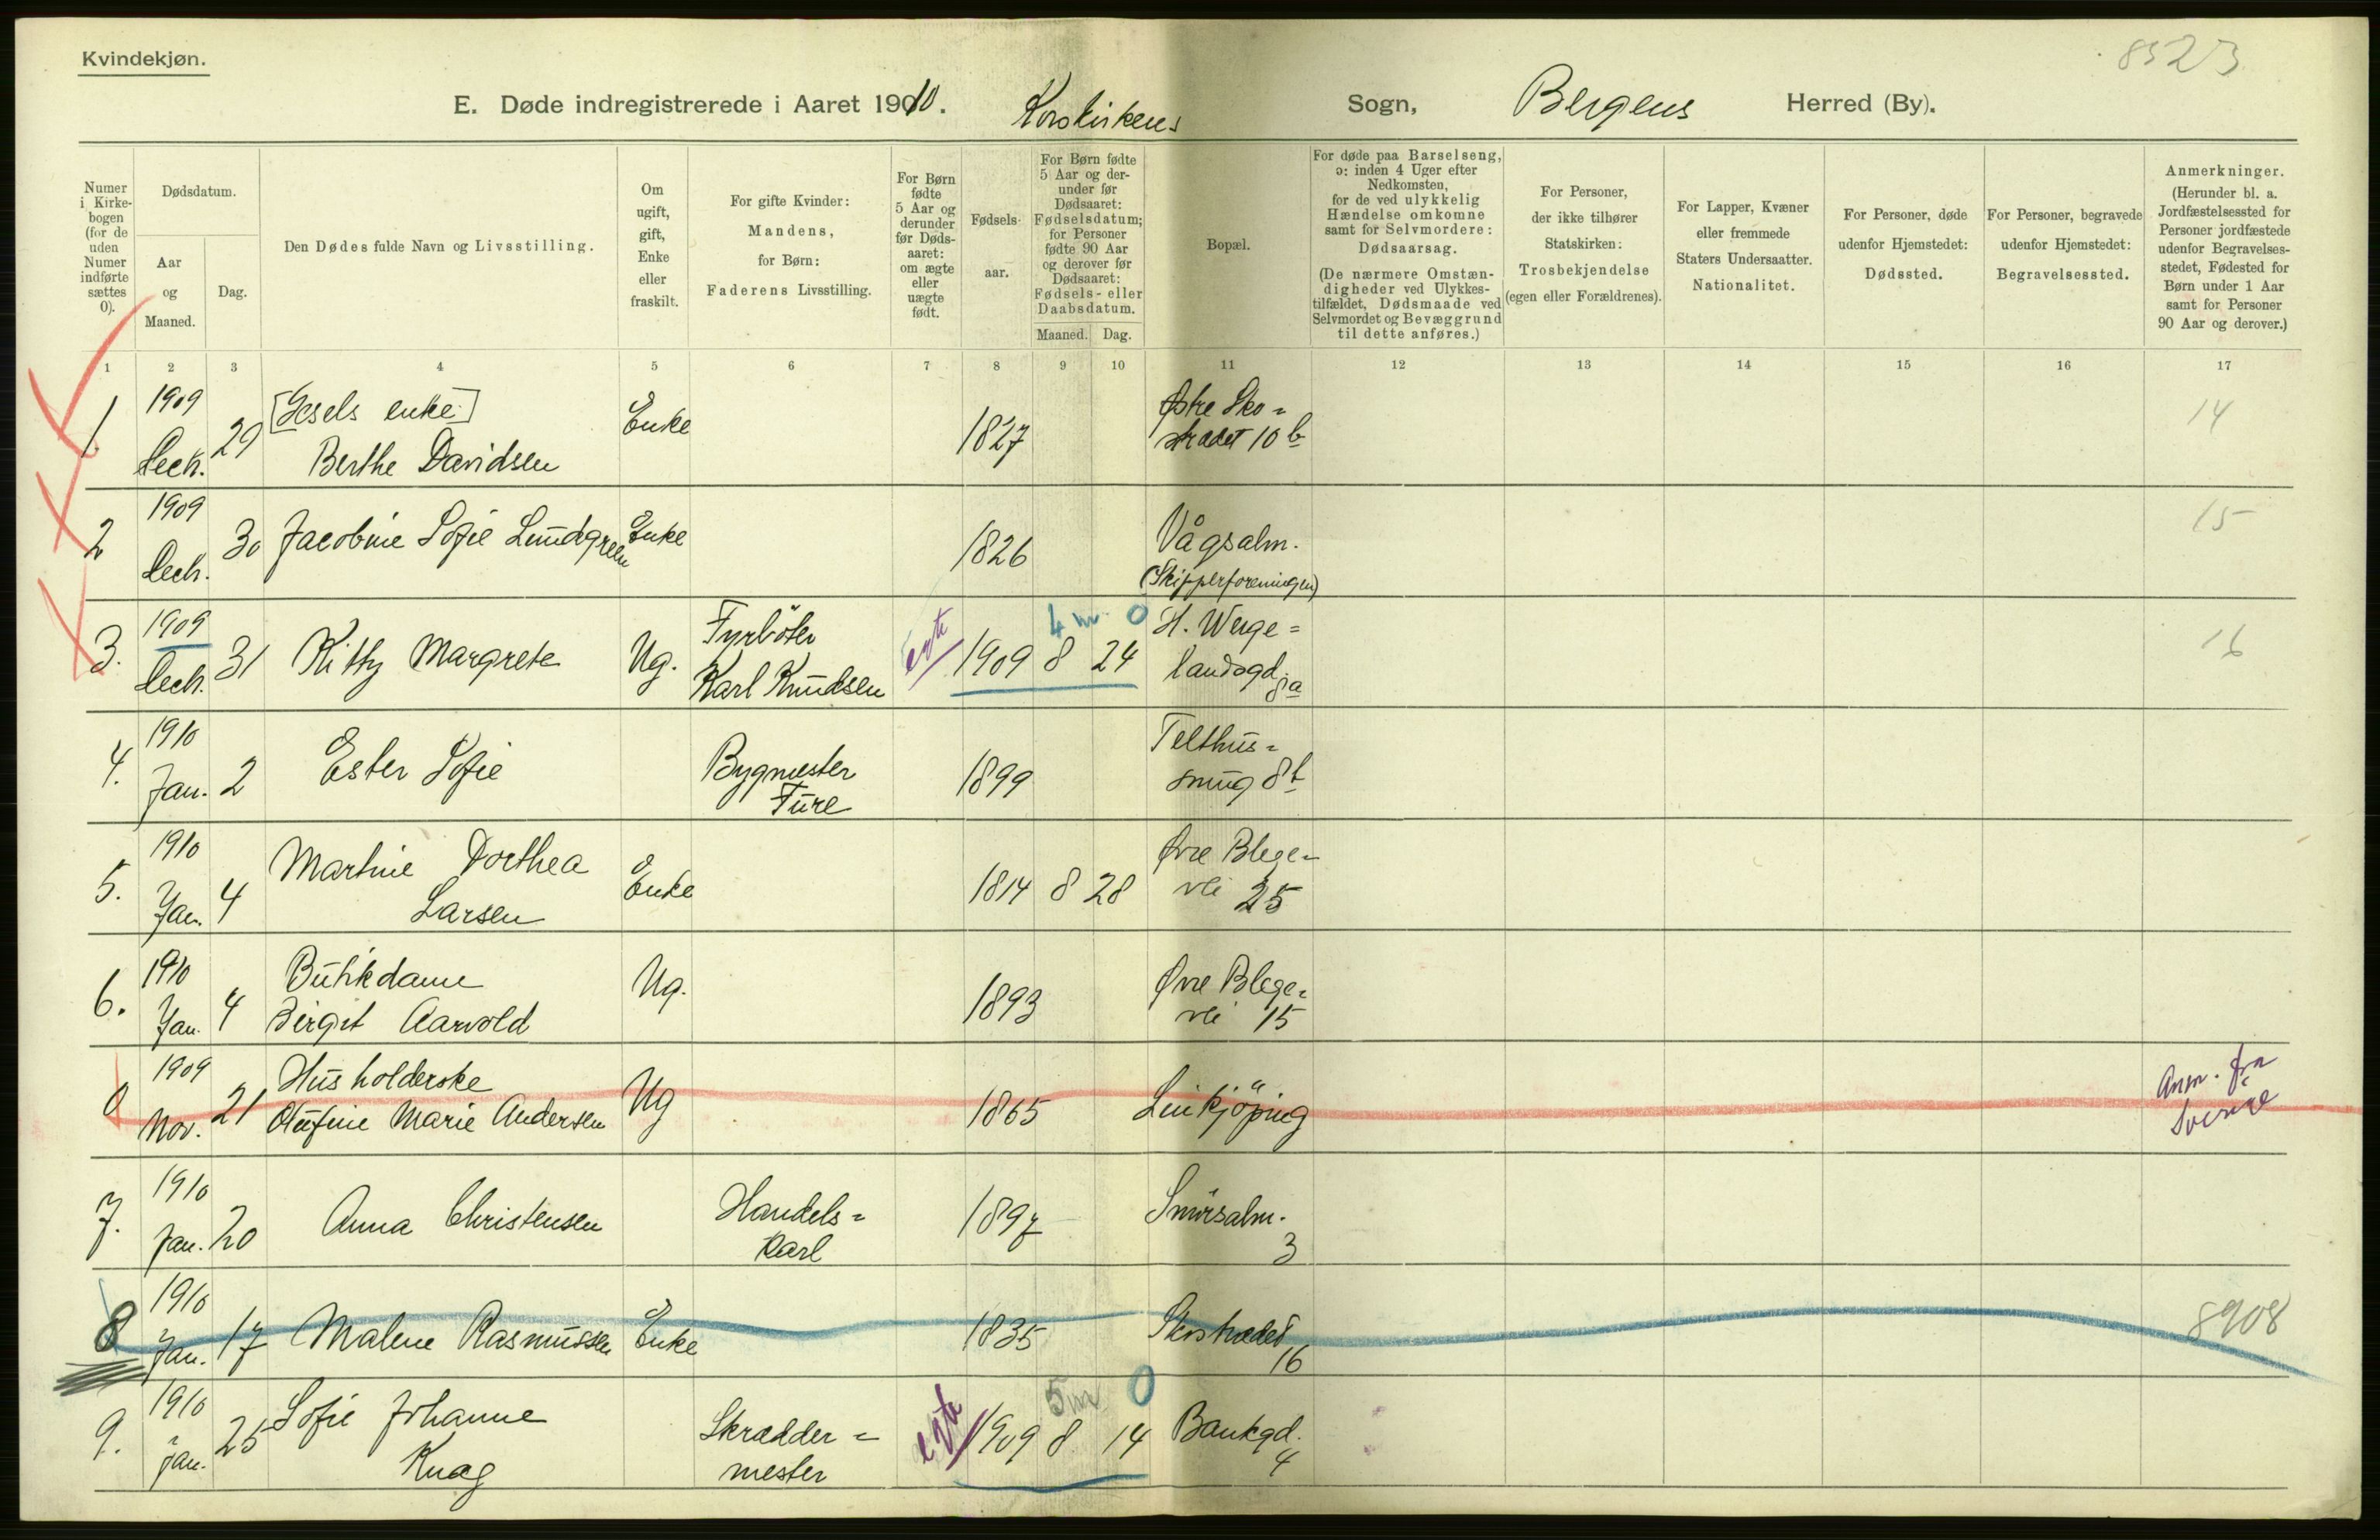 Kvindekjøn.
8523
E. Døde indregistrerede i Aaret 1910. Korskirkens Sogn, Bergens Herred (By).
Numer
i Kirke-
bogen
(for de
uden
Numer
indførte
sættes
0).
Dødsdatum.
Aar
og
Maaned.
Dag.
Den Dødes fulde Navn og Livsstilling.
Om
ugift,
gift,
Enke
eller
fraskilt.
For gifte Kvinder:
Mandens,
for Børn:
Faderens Livsstilling.
For Børn
fødte
5 Aar og
derunder
før Døds-
aaret:
om ægte
eller
uægte
født.
Fødsels-
aar.
For Børn fødte
5 Aar og der-
under før
Dødsaaret:
Fødselsdatum;
for Personer
fødte 90 Aar
og derover før
Dødsaaret:
Fødsels- eller
Daabsdatum.
Maaned. Dag.
Bopæl.
For døde paa Barselseng,
ɔ: inden 4 Uger efter
Nedkomsten,
for de ved ulykkelig
Hændelse omkomne
samt for Selvmordere:
Dødsaarsag.
(De nærmere Omstæn-
digheder ved Ulykkes-
tilfældet, Dødsmaade ved
Selvmordet og Bevæggrund
til dette anføres.)
For Personer,
der ikke tilhører
Statskirken:
Trosbekjendelse
(egen eller Forældrenes).
For Lapper, Kvæner
eller fremmede
Staters Undersaatter.
Nationalitet.
For Personer, døde
udenfor Hjemstedet:
Dødssted.
For Personer, begravede
udenfor Hjemstedet:
Begravelsessted.
Anmerkninger.
(Herunder bl. a.
Jordfæstelsessted for
Personer jordfæstede
udenfor Begravelses-
stedet, Fødested for
Børn under 1 Aar
samt for Personer
90 Aar og derover.)
1 2 3 4 5 6 7 8 9 10 11 12 13 14 15 16 17
1909 [Gesels enke] Enke Østre Sko= 14
1. Dech. 29 Berthe Davidsen 1827 stradet 10 b
1909 15
2 Dech. 30 Jacobine Sofie Lundgreen Enke 1826 Vågsalm.
(Skipperforeningen)
1909 Fyrböter egte 4 m 0 H. Werge=
3. Dech. 31 Kitty Margrete Ug. Karl Knudsen 1909 8 24 landsgd 8 a 16
1910 Telthus=
4. Jan. 2 Ester Sofie Bygmester Ture 1899 smug 8 b
1910 Martine Dorthea Øvre Blege=
5. Jan. 4 Larsen Enke 1814 8 28 vei 25
1910 Butikdame Ug. Øvre Blege=
6. Jan. 4 Birgit Aarvold 1893 vei 15
1909 Husholderske Anm. fra
0 Nov. 21 Olufine Marie Andersen Ug 1865 Linkjöping Sverige
1910 Handels= Smörsalm.
7. Jan. 20 Anna Christensen karl 1897 3
1910 8908
8 Jan. 17 Malene Rasmussen Enke 1835 Skostrædet 16
1910 Sofie Johanne Skrædder= egte 5 m 0 Bankgd.
9. Jan. 25 Knag mester 1909 8 14 4